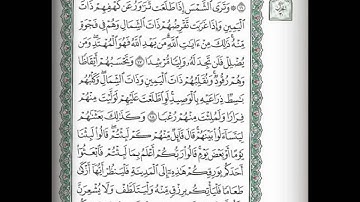 ۞ وَتَرَى ٱلشَّمْسَ إِذَا طَلَعَت تَّزَٰوَرُ عَن كَهْفِهِمْ ذَاتَ
ٱلْيَمِينِ وَإِذَا غَرَبَت تَّقْرِضُهُمْ ذَاتَ ٱلشِّمَالِ وَهُمْ فِى فَجْوَةٍ
مِّنْهُ ذَٰلِكَ مِنْ ءَايَٰتِ ٱللَّهِ مَن يَهْدِ ٱللَّهُ فَهُوَ ٱلْمُهْتَدِ وَمَن
يُضْلِلْ فَلَن تَجِدَ لَهُۥ وَلِيًّا مُّرْشِدًا ١٧ وَتَحْسَبُهُمْ أَيْقَاظًا
وَهُمْ رُقُودٌ وَنُقَلِّبُهُمْ ذَاتَ ٱلْيَمِينِ وَذَاتَ ٱلشِّمَالِ وَكَلْبُهُم
بَٰسِطٌ ذِرَاعَيْهِ بِٱلْوَصِيدِ لَوِ ٱطَّلَعْتَ عَلَيْهِمْ لَوَلَّيْتَ مِنْهُمْ
فِرَارًا وَلَمُلِئْتَ مِنْهُمْ رُعْبًا ١٨ وَكَذَٰلِكَ بَعَثْنَٰهُمْ
لِيَتَسَآءَلُوا۟ بَيْنَهُمْ قَالَ قَآئِلٌ مِّنْهُمْ كَمْ لَبِثْتُمْ قَالُوا۟ لَبِثْنَا
يَوْمًا أَوْ بَعْضَ يَوْمٍ قَالُوا۟ رَبُّكُمْ أَعْلَمُ بِمَا لَبِثْتُمْ فَٱبْعَثُوٓا۟
أَحَدَكُم بِوَرِقِكُمْ هَٰذِهِۦٓ إِلَى ٱلْمَدِينَةِ فَلْيَنظُرْ أَيُّهَآ أَزْكَىٰ
طَعَامًا فَلْيَأْتِكُم بِرِزْقٍ مِّنْهُ وَلْيَتَلَطَّفْ وَلَا يُشْعِرَنَّ